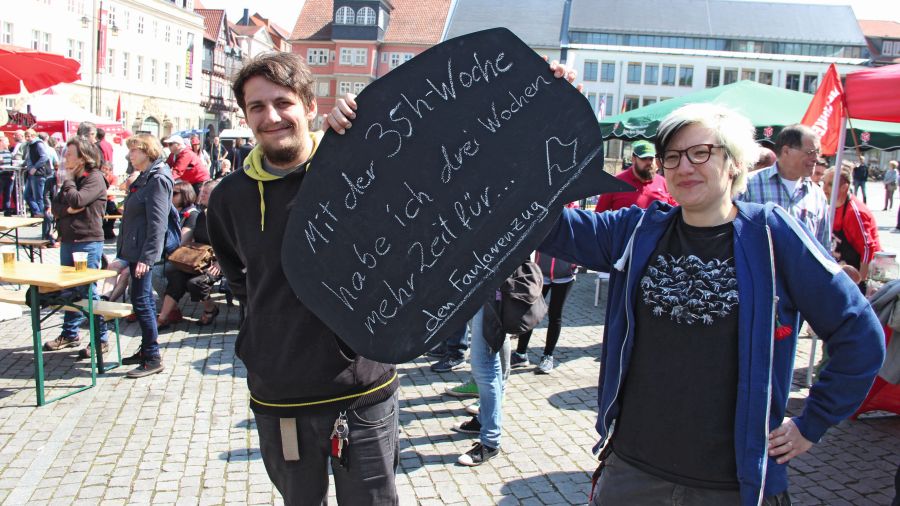 Mit der 35h-Woche
habe ich drei Wochen
mehr Zeit für...
den Fanfarenzug